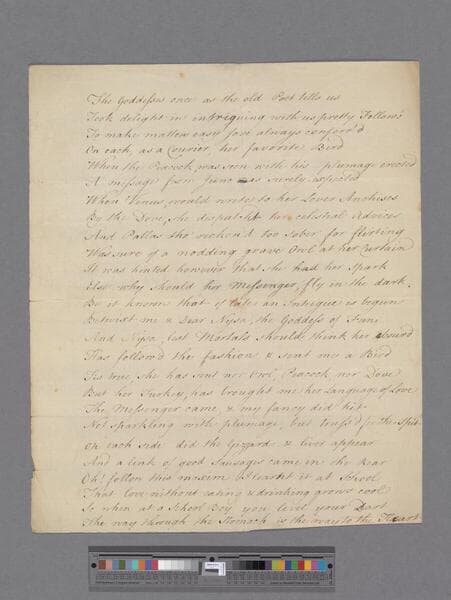 The Goddesses once as the old Poet tells us
Took delight in intriguing with us pretty Fellows
To make matters easy Jove always conferr'd
On each, as a Courier, her favorite Bird
When the Peacock was seen with his plumage erected
A message from Juno was surely expected
When Venus would write to her Lover Anchises
By the Dove, she dispatch't her celestial Advices
And Pallas tho' reckon'd too sober for flirting
Was sure of a nodding grave Owl at her Curtain
It was hinted however that she had her Spark
Else why should her Messenger, fly in the dark.
Be it known that of late an Intrigue is begun
Betwixt me & Dear Nysa, the Goddess of Fun
And Nysa, lest Mortals should think her absurd
Has follow'd the fashion & sent me a Bird
Tis true, she has sent nor Owl, Peacock, nor Dove
But her Turkey, has brought me her Language of Love
The Messenger came, & my fancy did hit
Not sparkling with plumage, but truss'd for the Spit
On each side did the Gizzard & liver appear
And a link of good Sausages came in the Rear
Oh! follow this maxim I learnt it at School
That love without eating & drinking grows cool
So when at a School Boy you level your Dart
The way through the Stomach is the way to the Heart